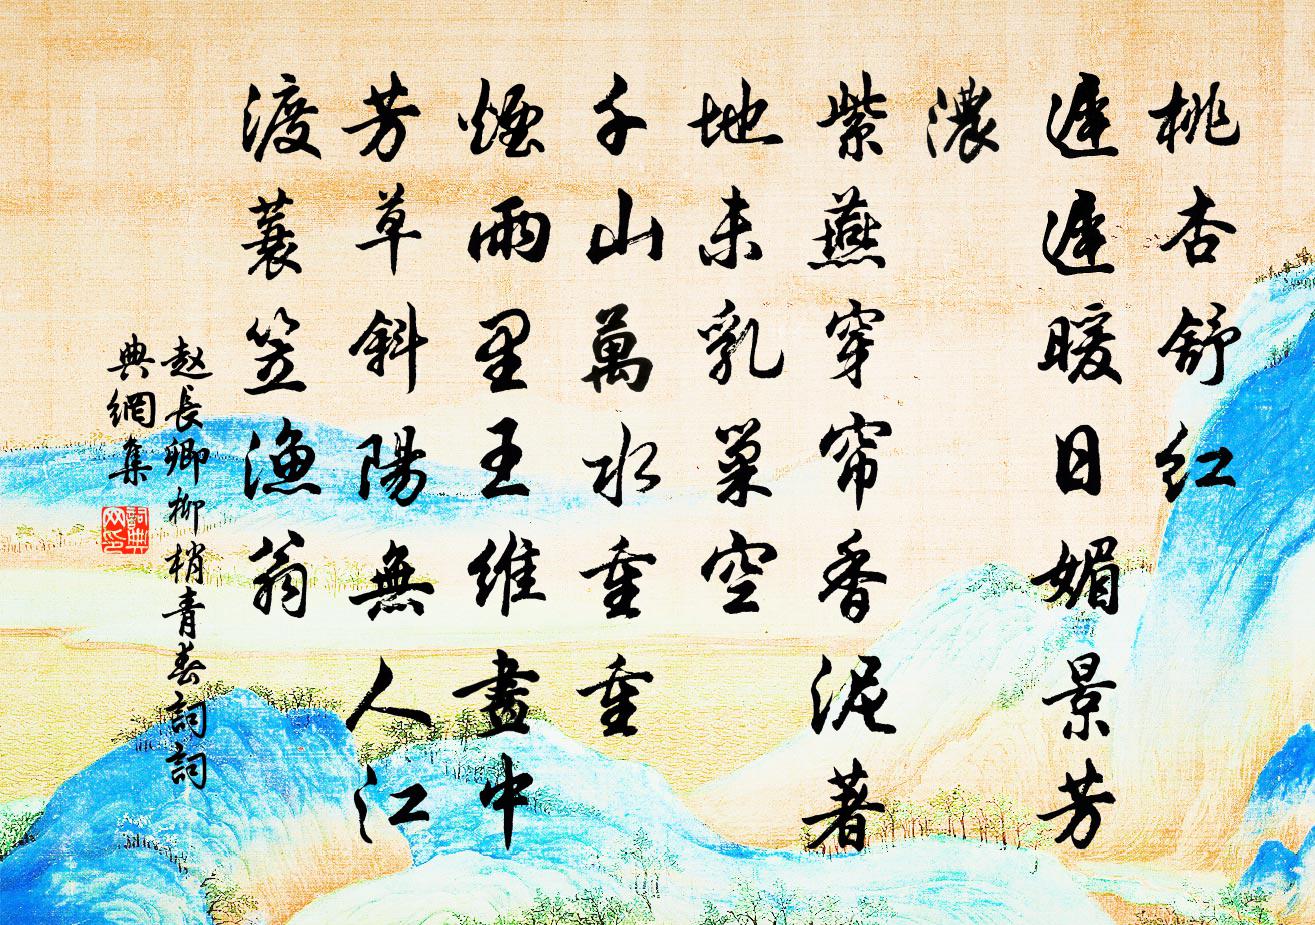 桃杏舒红
遲遲暖日媚景芳
濃
紫燕穿帘香泥著
地未乳巢空
千山萬水重重
煙雨里王維畫中
芳草斜陽無人江
渡蓑笠漁翁
赵長卿柳梢青春詞詞
典網集
詞典
网印